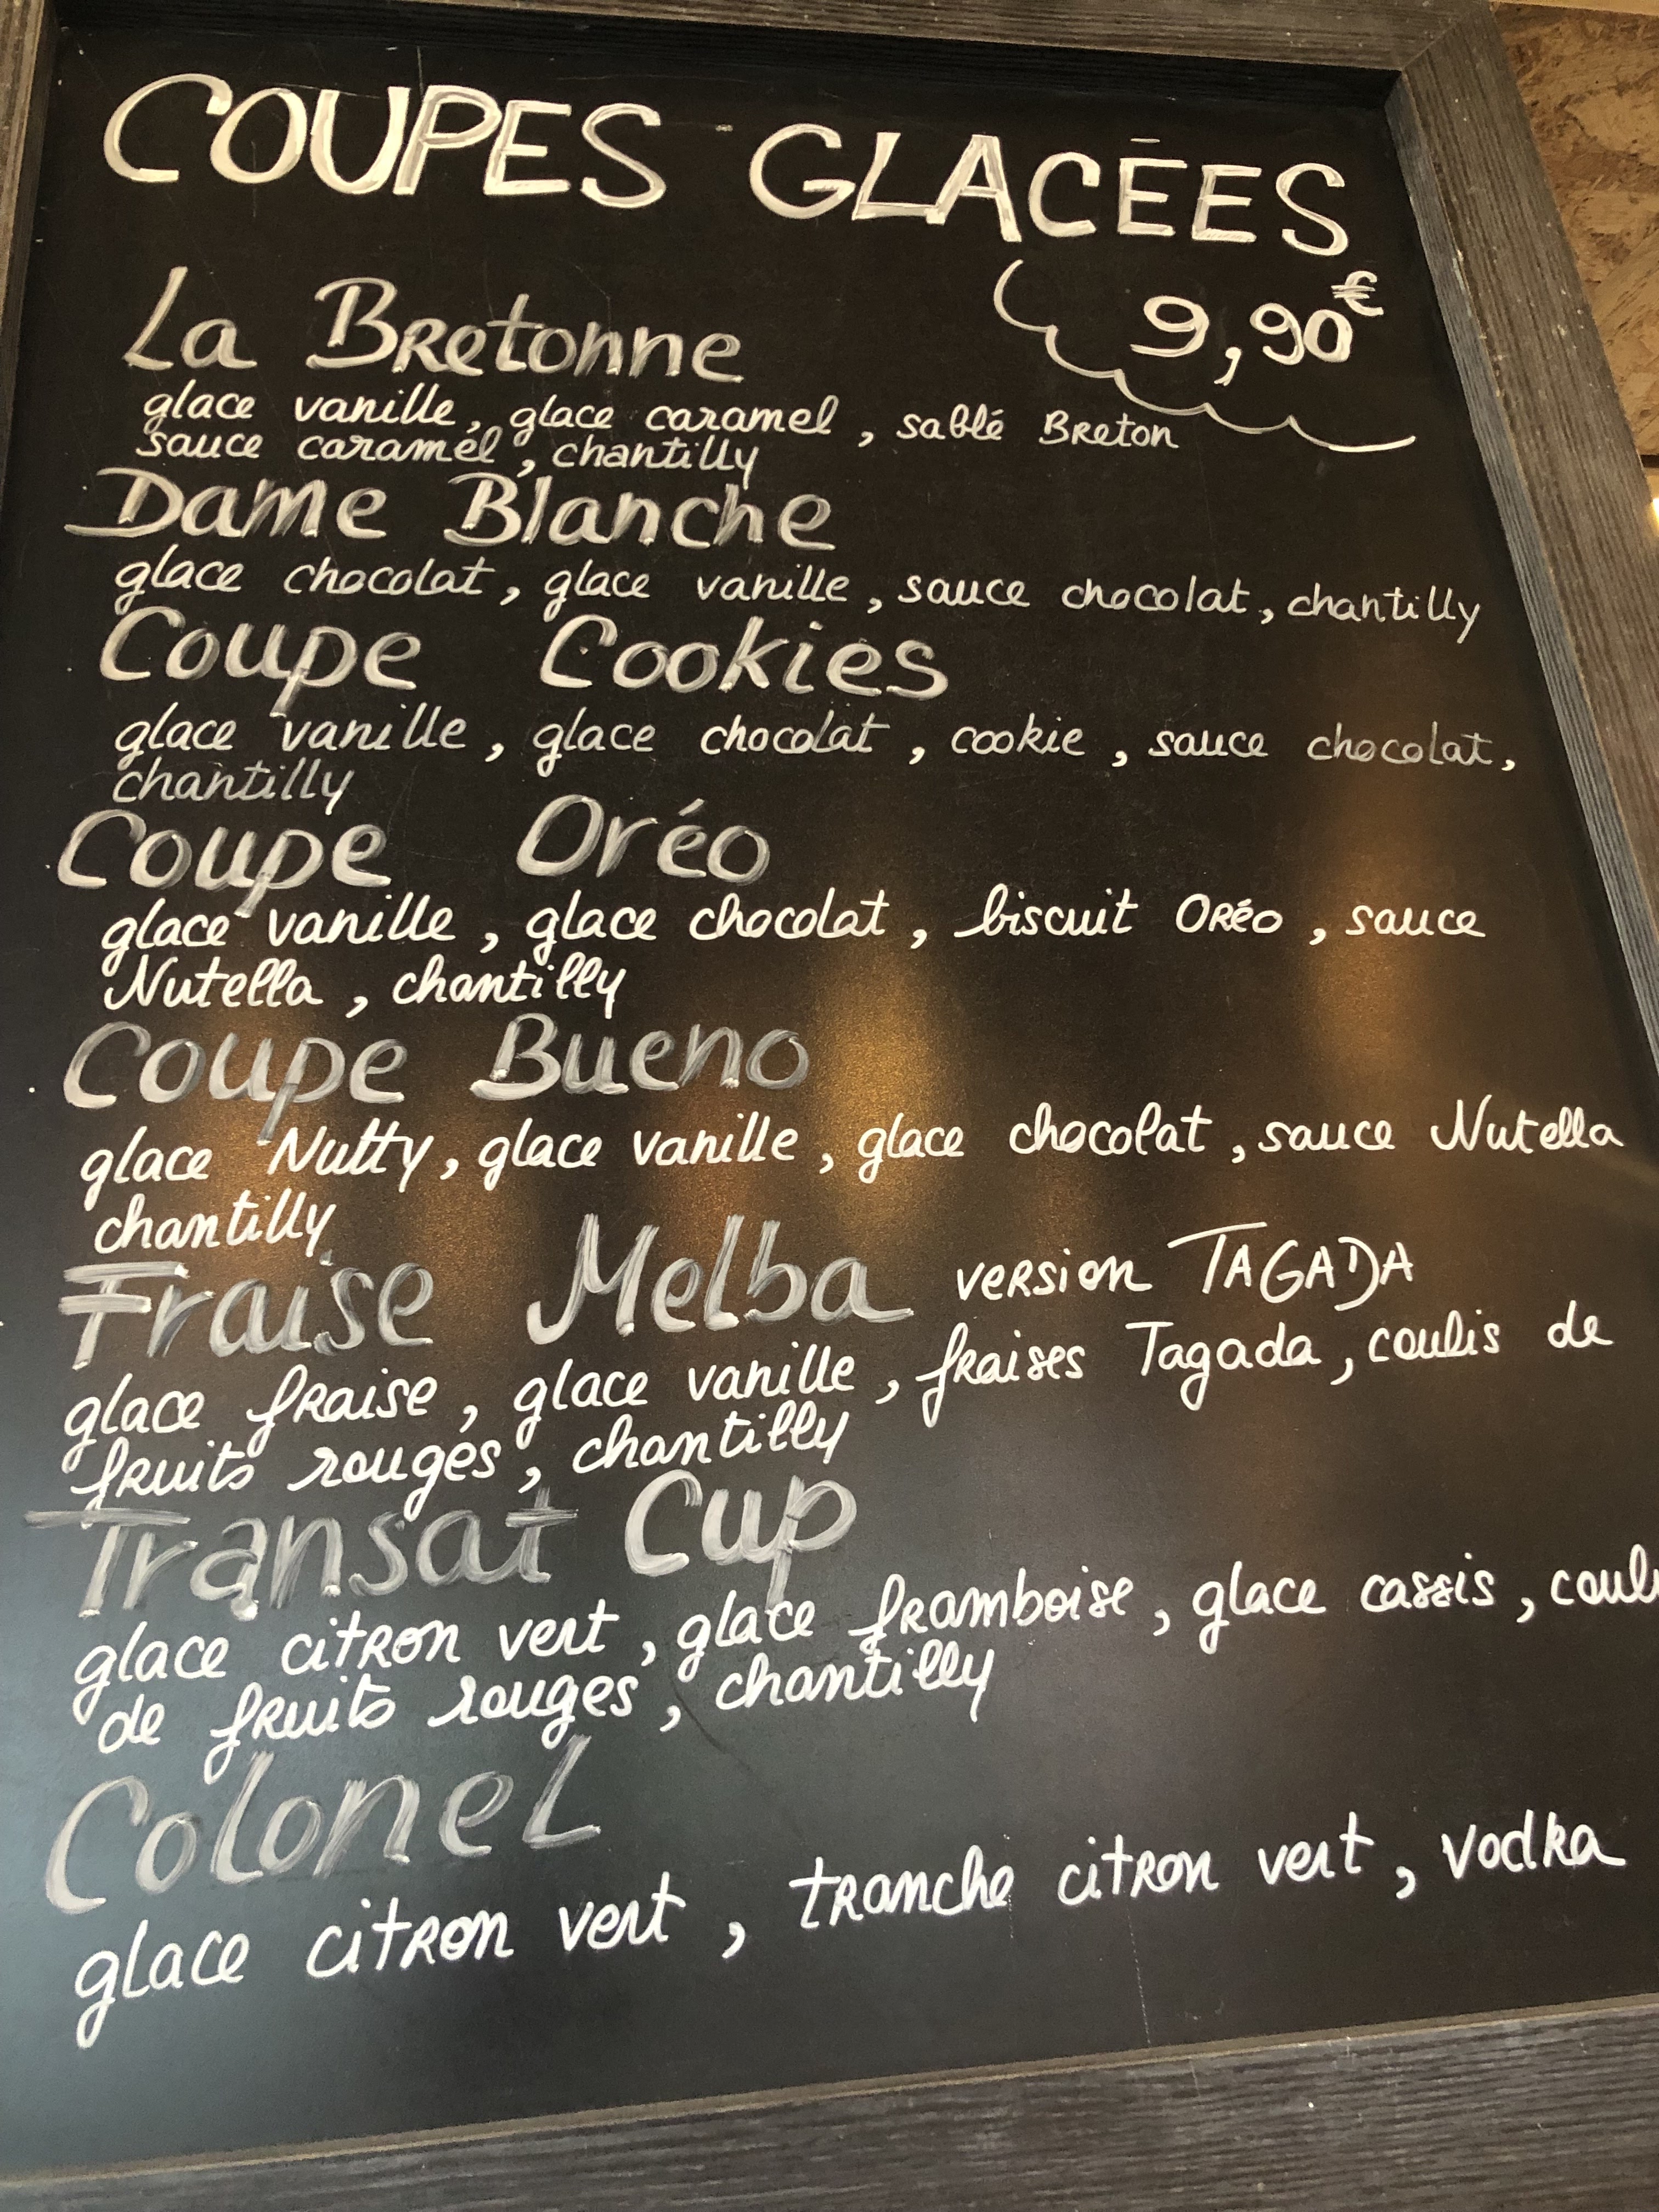 COUPES GLACÉES
9,90€
La Bretonne
glace vanille, glace caramel, sablé Breton
sauce caramel, chantilly
Dame Blanche
glace chocolat, glace vanille, sauce chocolat, chantilly
Coupe Cookies
glace vanille, glace chocolat, cookie, sauce chocolat,
chantilly
Coupe Oréo
glace vanille, glace chocolat, biscuit Oréo, sauce
Nutella, chantilly
Coupe Bueno
glace Nutty, glace vanille, glace chocolat, sauce Nutella
chantilly
Fraise Melba version TAGADA
glace fraise, glace vanille, fraises Tagada, coulis de
fruits rouges, chantilly
Transat Cup
glace citron vert, glace framboise, glace cassis, coul
de fruits rouges, chantilly
Colonel
glace citron vert, tranche citron vert, vodka